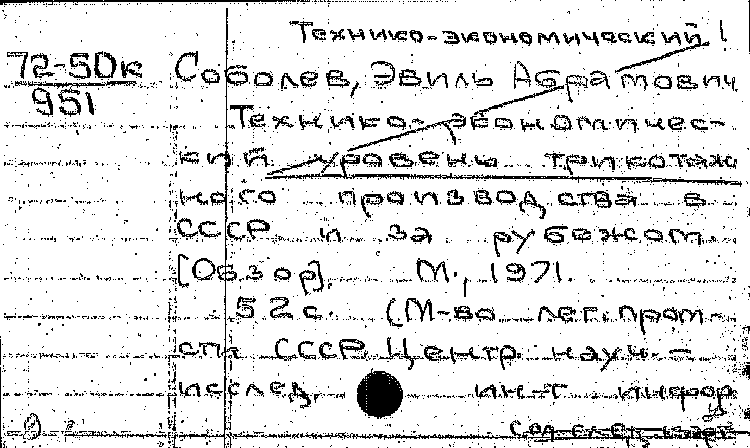 Технико-экономический!
72-50к
951
Соболев, Эвиль Абрамович
Технико-экономичес-
кий уровень трикотаж
ного производства в
СССР и за рубежом.
[Обзор]. М., 1971.
52 с. (М-во лег. пром-
сти СССР. Центр. науч.-
исслед. ин-т информ